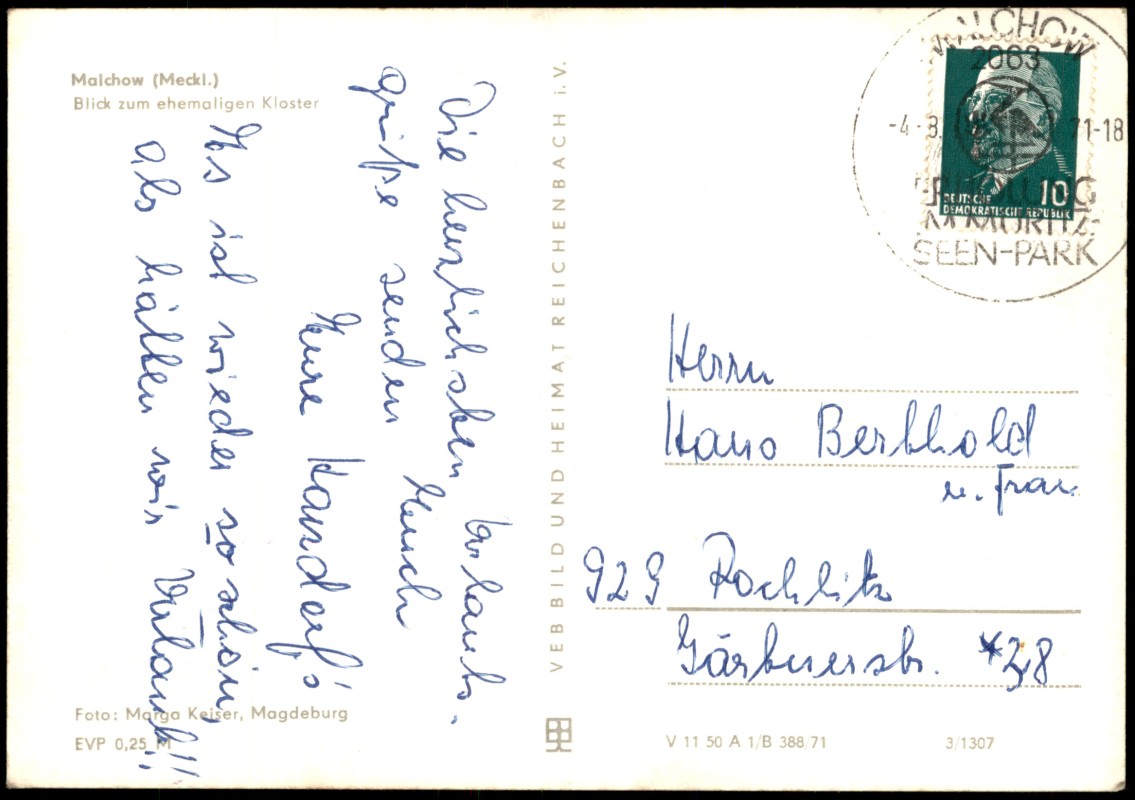 Malchow (Meckl.)
Blick zum ehemaligen Kloster
Die herzlichsten Urlaubs-
grüße senden Euch
Eure
Es ist wieder so schön,
als hätten wir Urlaub!!
Foto: Marga Keiser, Magdeburg
EVP 0,25 M
VEB BILD UND HEIMAT REICHENBACH i. V.
MALCHOW
2063
-4.-8. 71-18
ERHOLUNG
IM MÜRITZ-
SEEN-PARK
10
DEUTSCHE
DEMOKRATISCHE REPUBLIK
Herrn
Hans Berthold
u. Frau
929 Rochlitz
Gärtnerstr. 38
V 11 50 A 1/B 388/71
3/1307